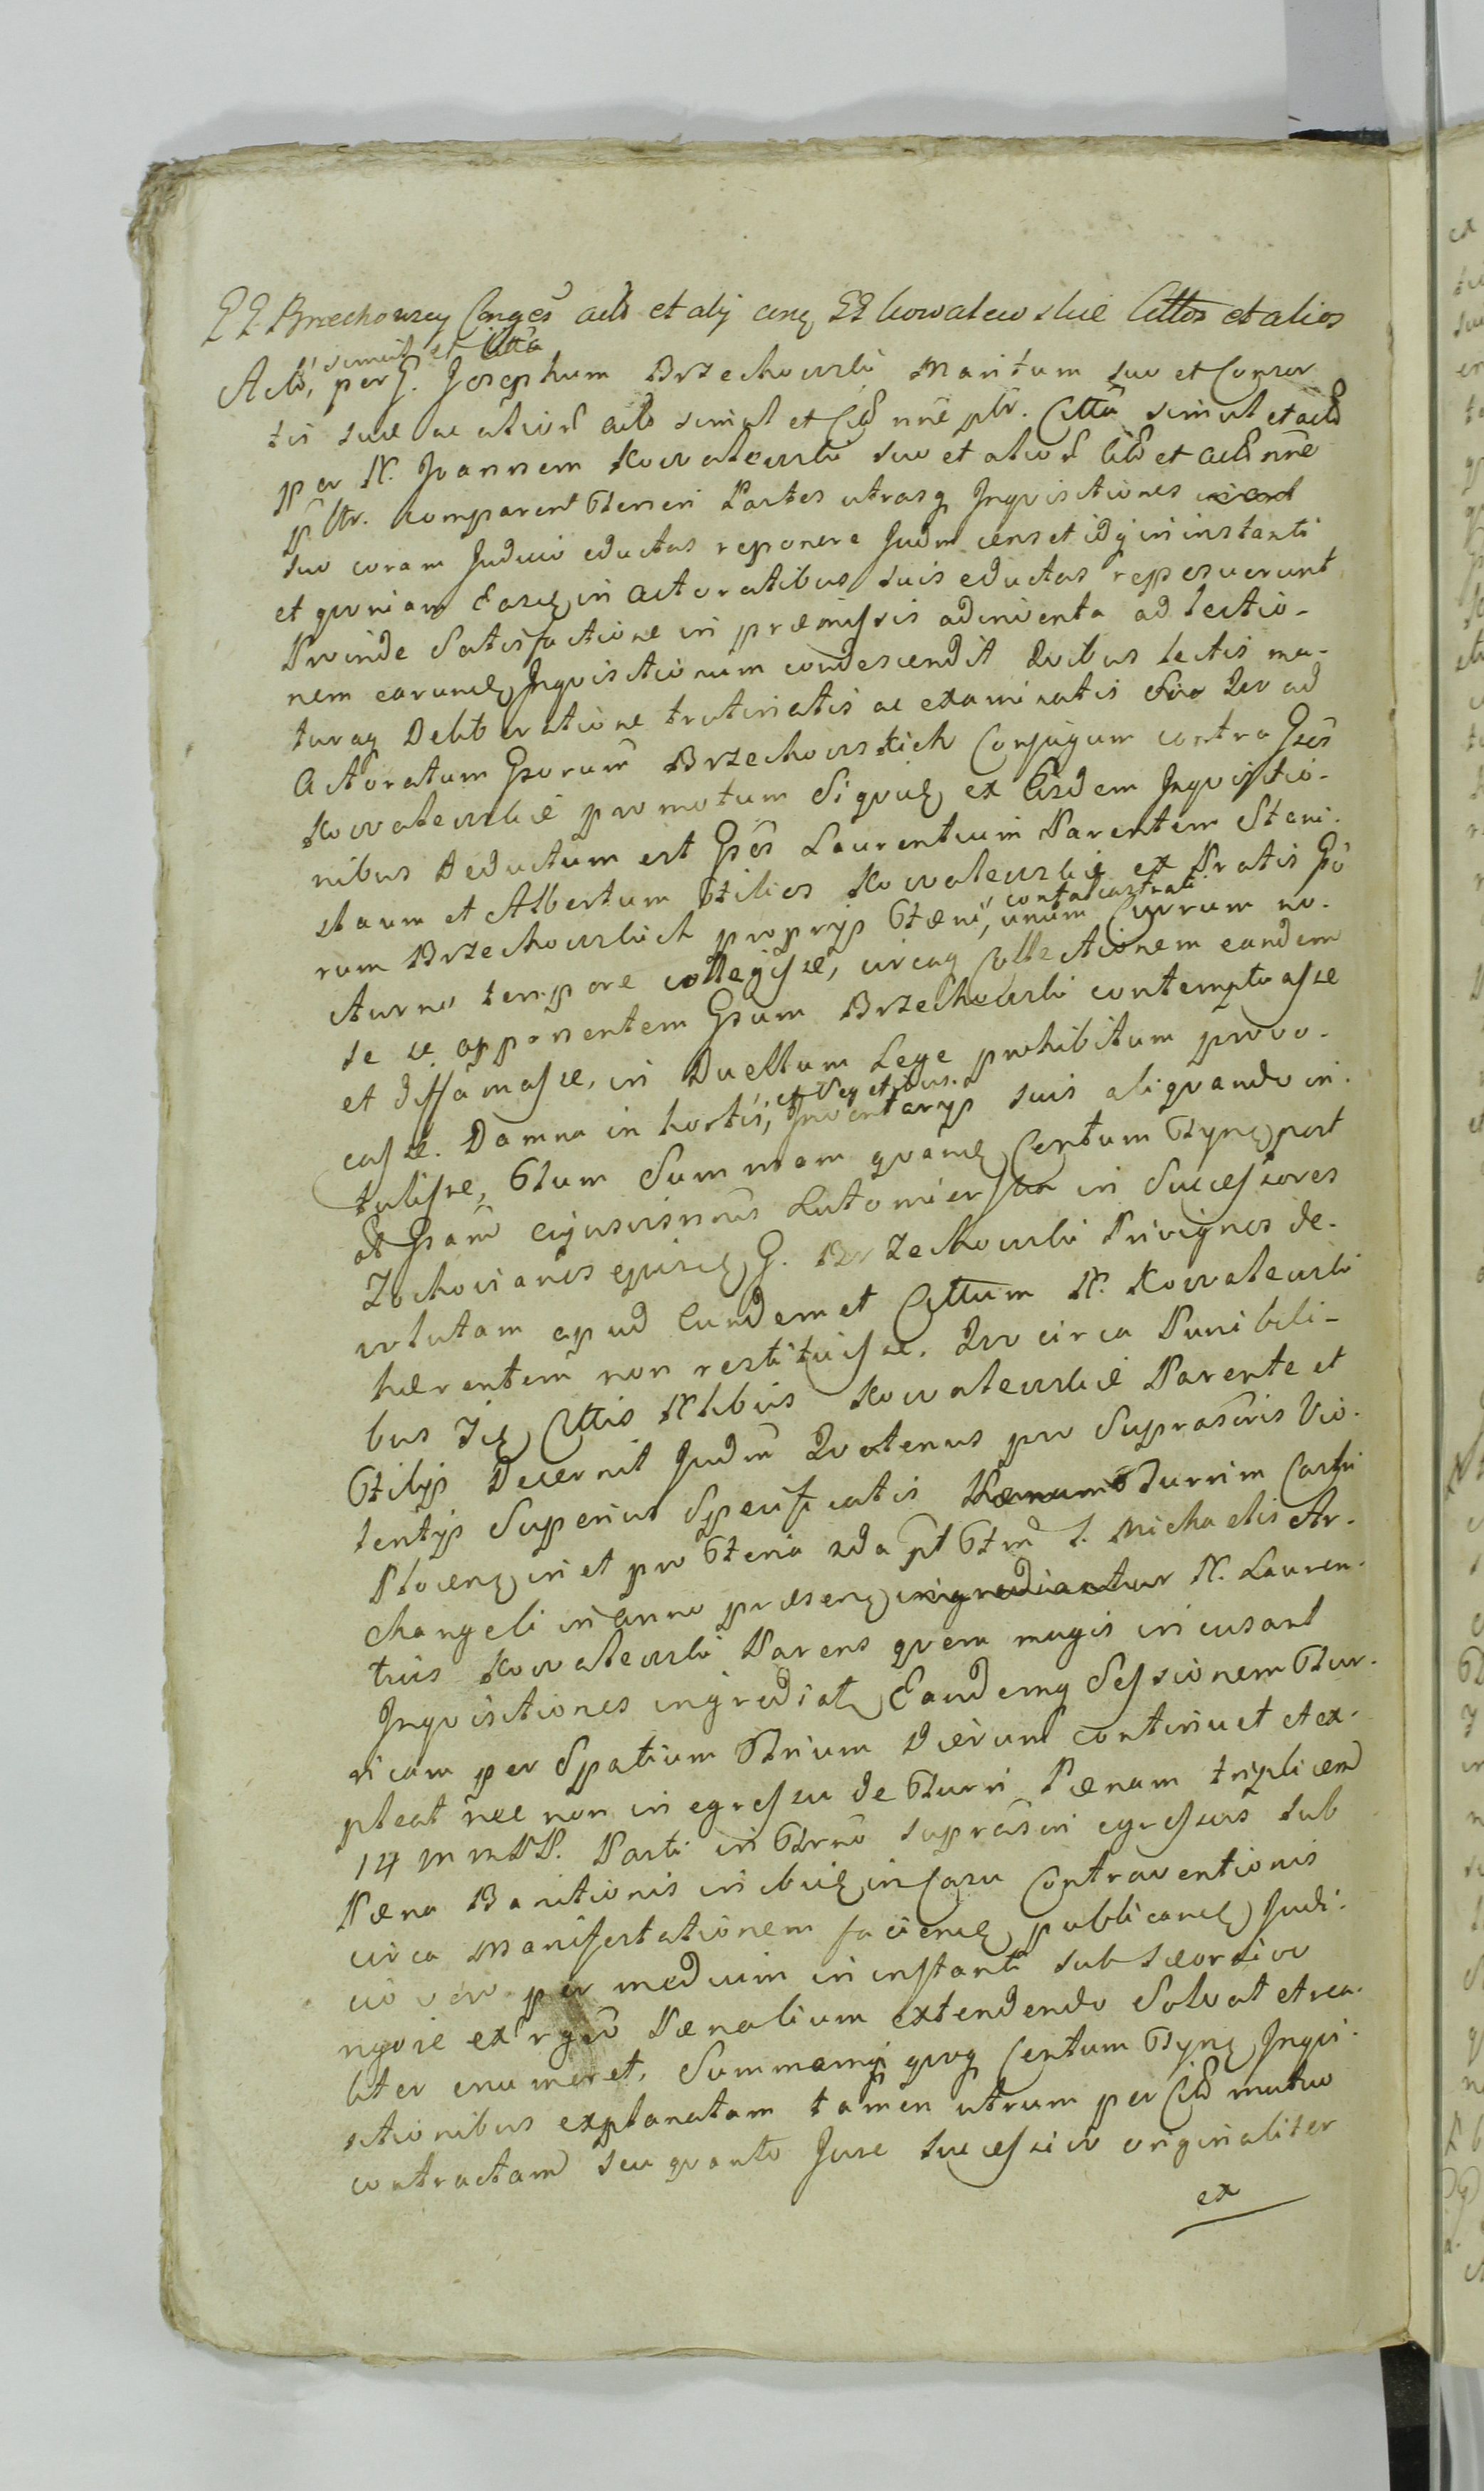 GG. Brzechowscy Conges actō et alij conq GG Kowalewskie Cittos et alios
simul et Citta
Actō, per G. Josephum Brzechowski Maritum suo et Consor
tis suæ ac aliorũ actō simul et Citō nñe ptr. Citta simul et actō
per N. Joannem Kowalewski suo et aliorũ Citō et actō nñe
ptr. comparent Teneri Partes utrasq Inqvisitiones
suo coram Judicio eductas reponere Judm censet idq in instanti
et qvoniam Easdē in actoratibus suis eductas reposuerunt
Proinde Satisfactione in præmissis adinventa ad lectio-
nem earundē Inqvisitionum condescendit Qvibus lectis ma-
turaq Deliberatione trutinatis ac examinatis Qvo ad
Actoratum Gsorum Brzechowskich Conjugum contra Gsos
Kowalewskie promotum Siqvidē ex Eisdem Inqvisitio-
nibus Deductum est Gsos Laurentium Parentem Stani-
slaum et Albertum Filios Kowalewskie ex Pratis Gso
rum Brzechowskich proprijs Fœni, unum Currum no-
cturno tempore collegisse, circaq Collectionem eandem
se se opponentem Gsum Brzechowski contemptasse
et diffamasse, in Duellum Lege prohibitum provo-
casse. Damna in hortis, et Segetibus Inventarijs suis aliqvando in-
tulisse, Tum Summam qvandē Centum Tynf post
ol Gsam Lutomierska in Successores
Zochovianos ejusdē G. Brzechowski Privignos de-
volutam apud Eundem et Cittum N. Kowalewski
hærentem non restituisse. Qvo circa Punibili-
bus Citttis Nlibus Kowalewskie Parente et
Filijs Decernit Judm Qvatenus pro Suprascris Vio-
lentijs Superius Specificatis Turrim Castri
Plocen in et pro Feria 2da pt Ftm S. Michaelis Ar-
changeli in anno præsen ingrediantur N. Lauren-
tius Kowalewski Parens qvem magis incusant
Inqvisitiones ingrediat Eandemq Sessionem Tur-
ricam per Spatium Trium Dierum continuet et ex-
pleat nec non in egressu de Turri Pœnam triplicem
14 M m PP. Parti in Termo suprascri egressus sub
Pœna Banitionis in casu Contraventionis
circa Manifestationem faciendē publicandē Judi-
cio vero per medium in instanti sub
ngore ex rgro Pœnalium extendendo Solvat et rea-
liter enumeret. Summamq qvoq Centum Tynf Inqvi-
sitionibus explanatam tamen utrum per Citō mutuo
contractam seu qvanto Jure Successivo originaliter
ex